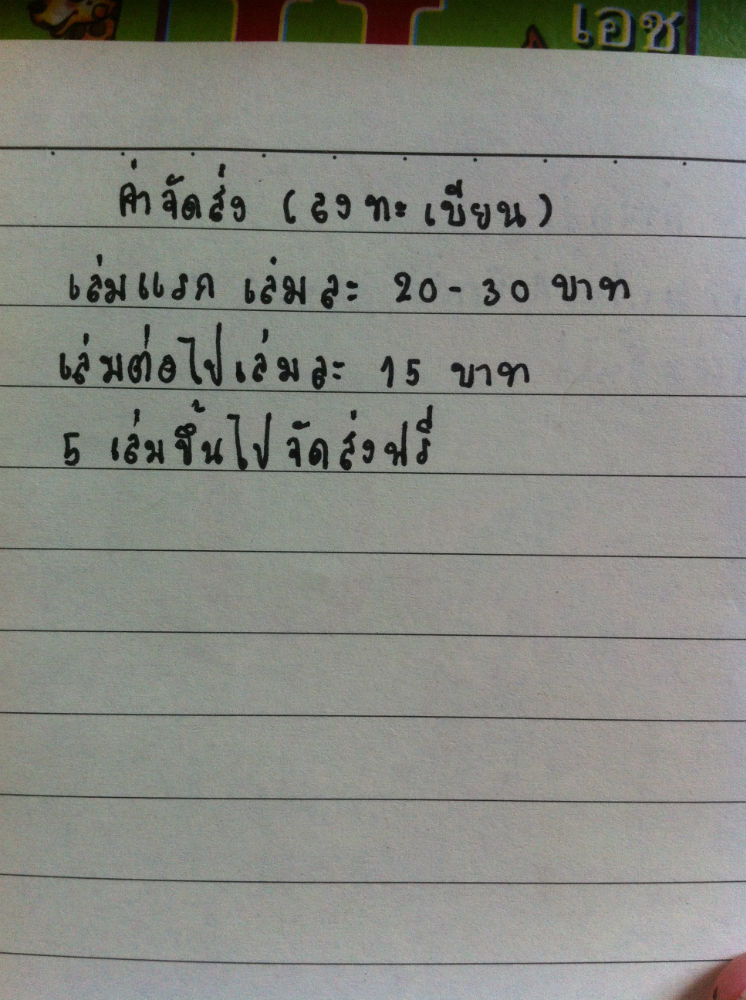 เอช
ค่าจัดส่ง (ลงทะเบียน)
เล่มแรก เล่มละ 20-30 บาท
เล่มต่อไปเล่มละ 15 บาท
5 เล่มขึ้นไปจัดส่งฟรี